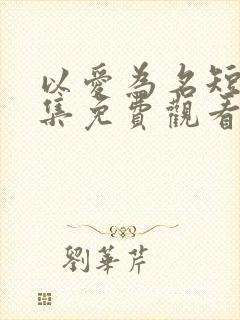 以愛為名短
集免費觀看
劉華芹